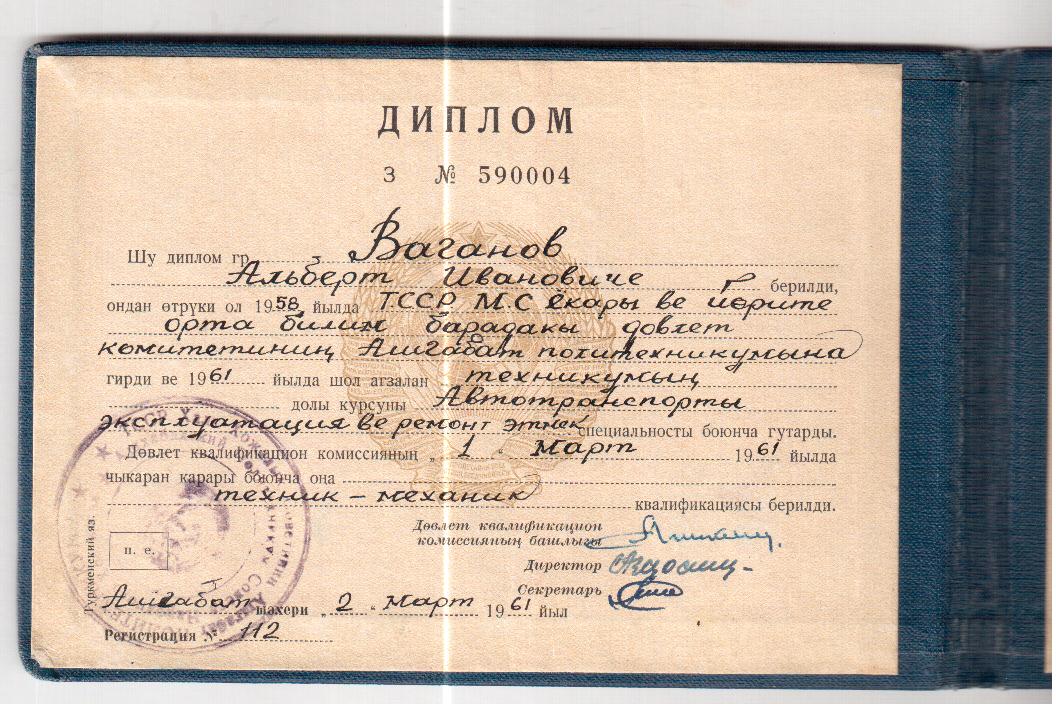 ДИПЛОМ
З № 590004
Шу диплом гр. Ваганов
Альберт Ивановиче берилди,
ондан өтруки ол 1958 йылда ТССР М.С ёкары ве йөрите
орта билим барадакы довлет
комитетиниң Ашгабат политехникумына
гирди ве 1961 йылда шол агзалан техникумың
долы курсуны Автотранспорты
эксплуатация ве ремонт этмек специальносты боюнча гутарды.
Дөвлет квалификацион комиссияның „1“ Март 1961 йылда
чыкаран карары боюнча оңа
техник – механик квалификациясы берилди.
Дөвлет квалификацион
комиссияның башлыгы
Директор
Секретарь
Туркменский яз.
п. е.
Ашгабат шахери „2“ Март 1961 йыл
Регистрация № 112